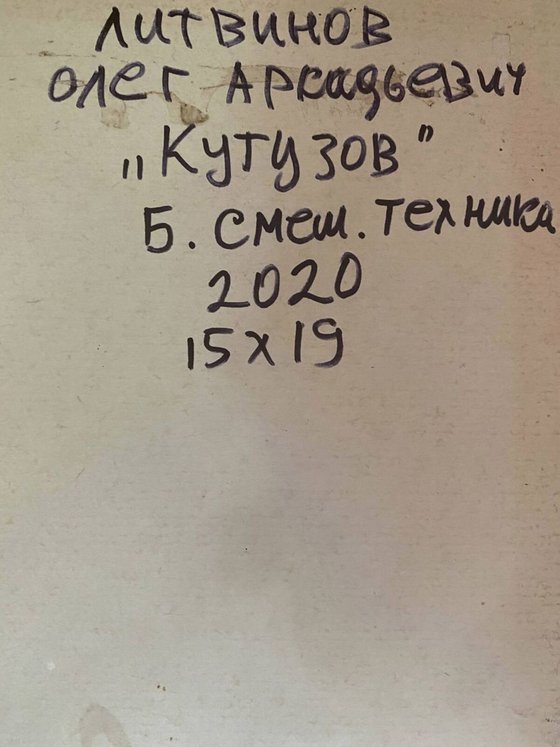 ЛИТВИНОВ
ОЛЕГ АРКадьевич
„КУТУЗОВ"
Б. смеш. техника
2020
15х19